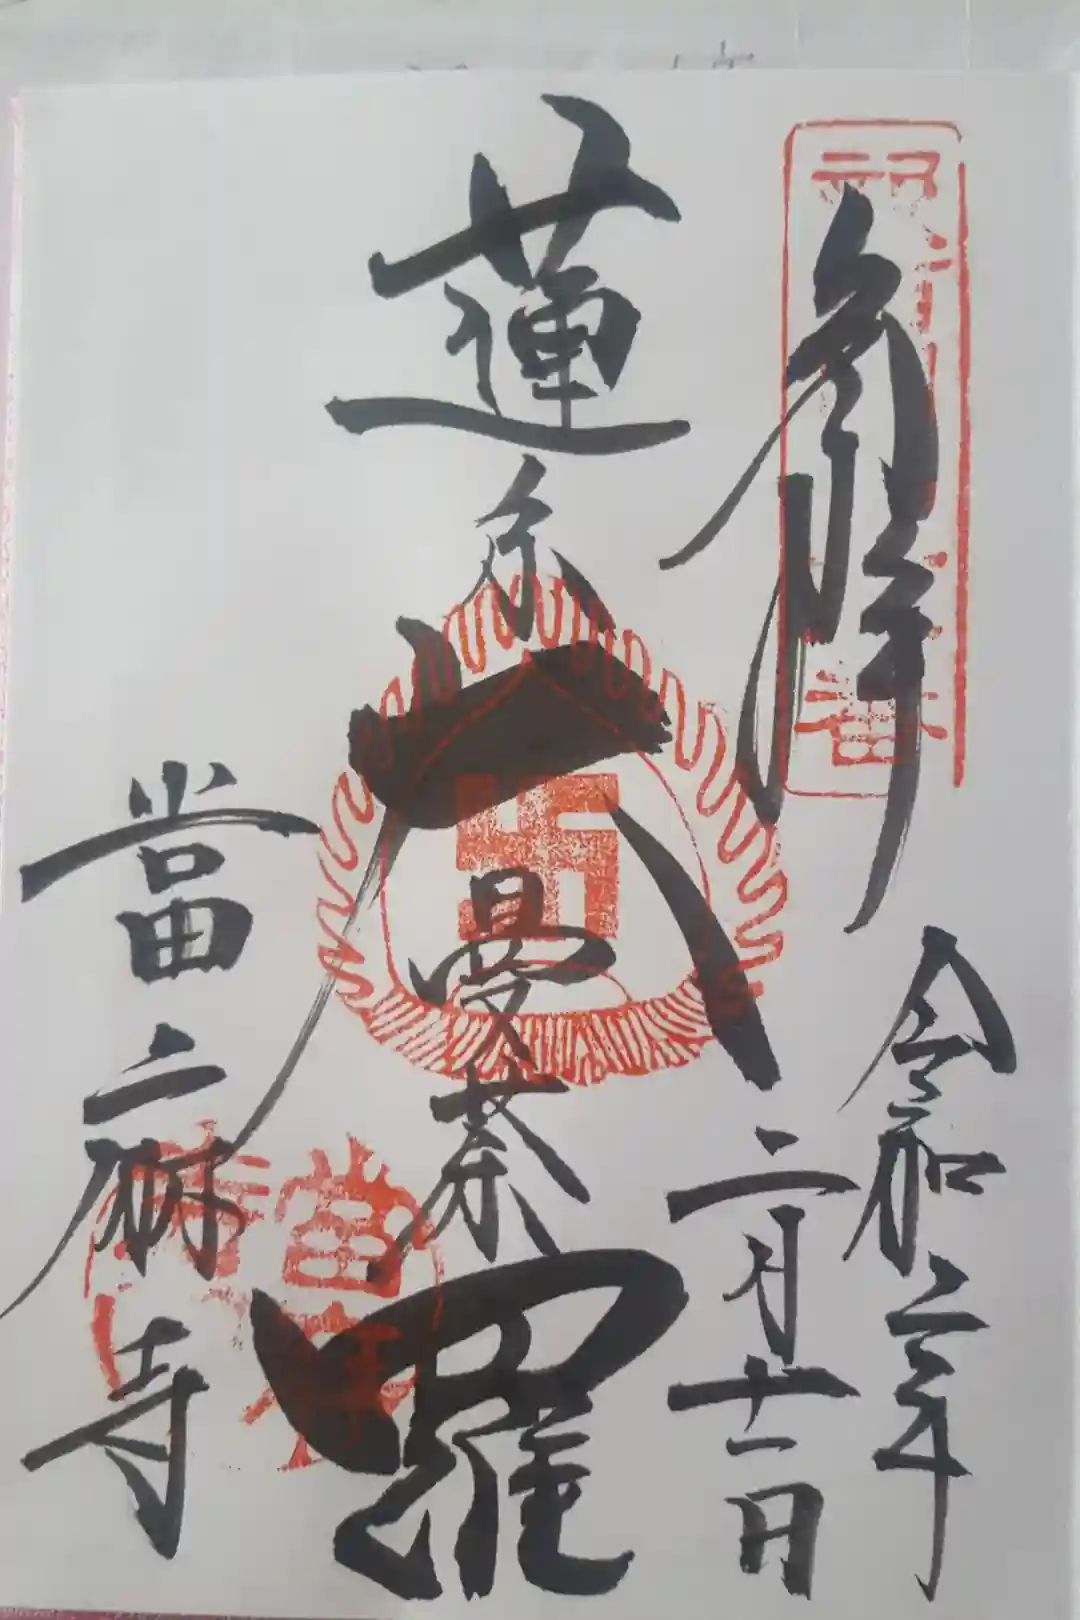 奉拝
令和二年
二月十一日
蓮糸大曼荼羅
當麻寺